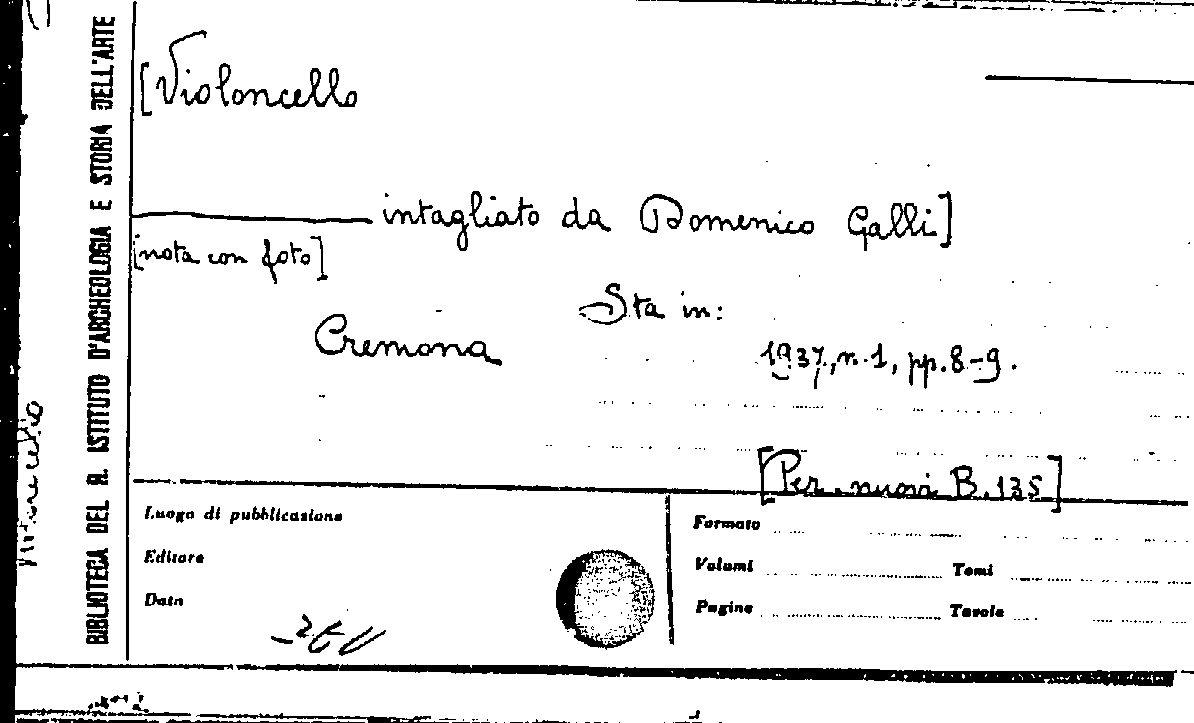 BIBLIOTECA DEL R. ISTITUTO D'ARCHEOLOGIA E STORIA DELL'ARTE
[Violoncello
intagliato da Domenico Galli]
[nota con foto]
Sta in:
Cremona
1937, n. 1, pp. 8-9.
[Per. nuovi B. 135]
Luogo di pubblicazione
Editore
Data
Formato
Volumi Tomi
Pagine Tavole